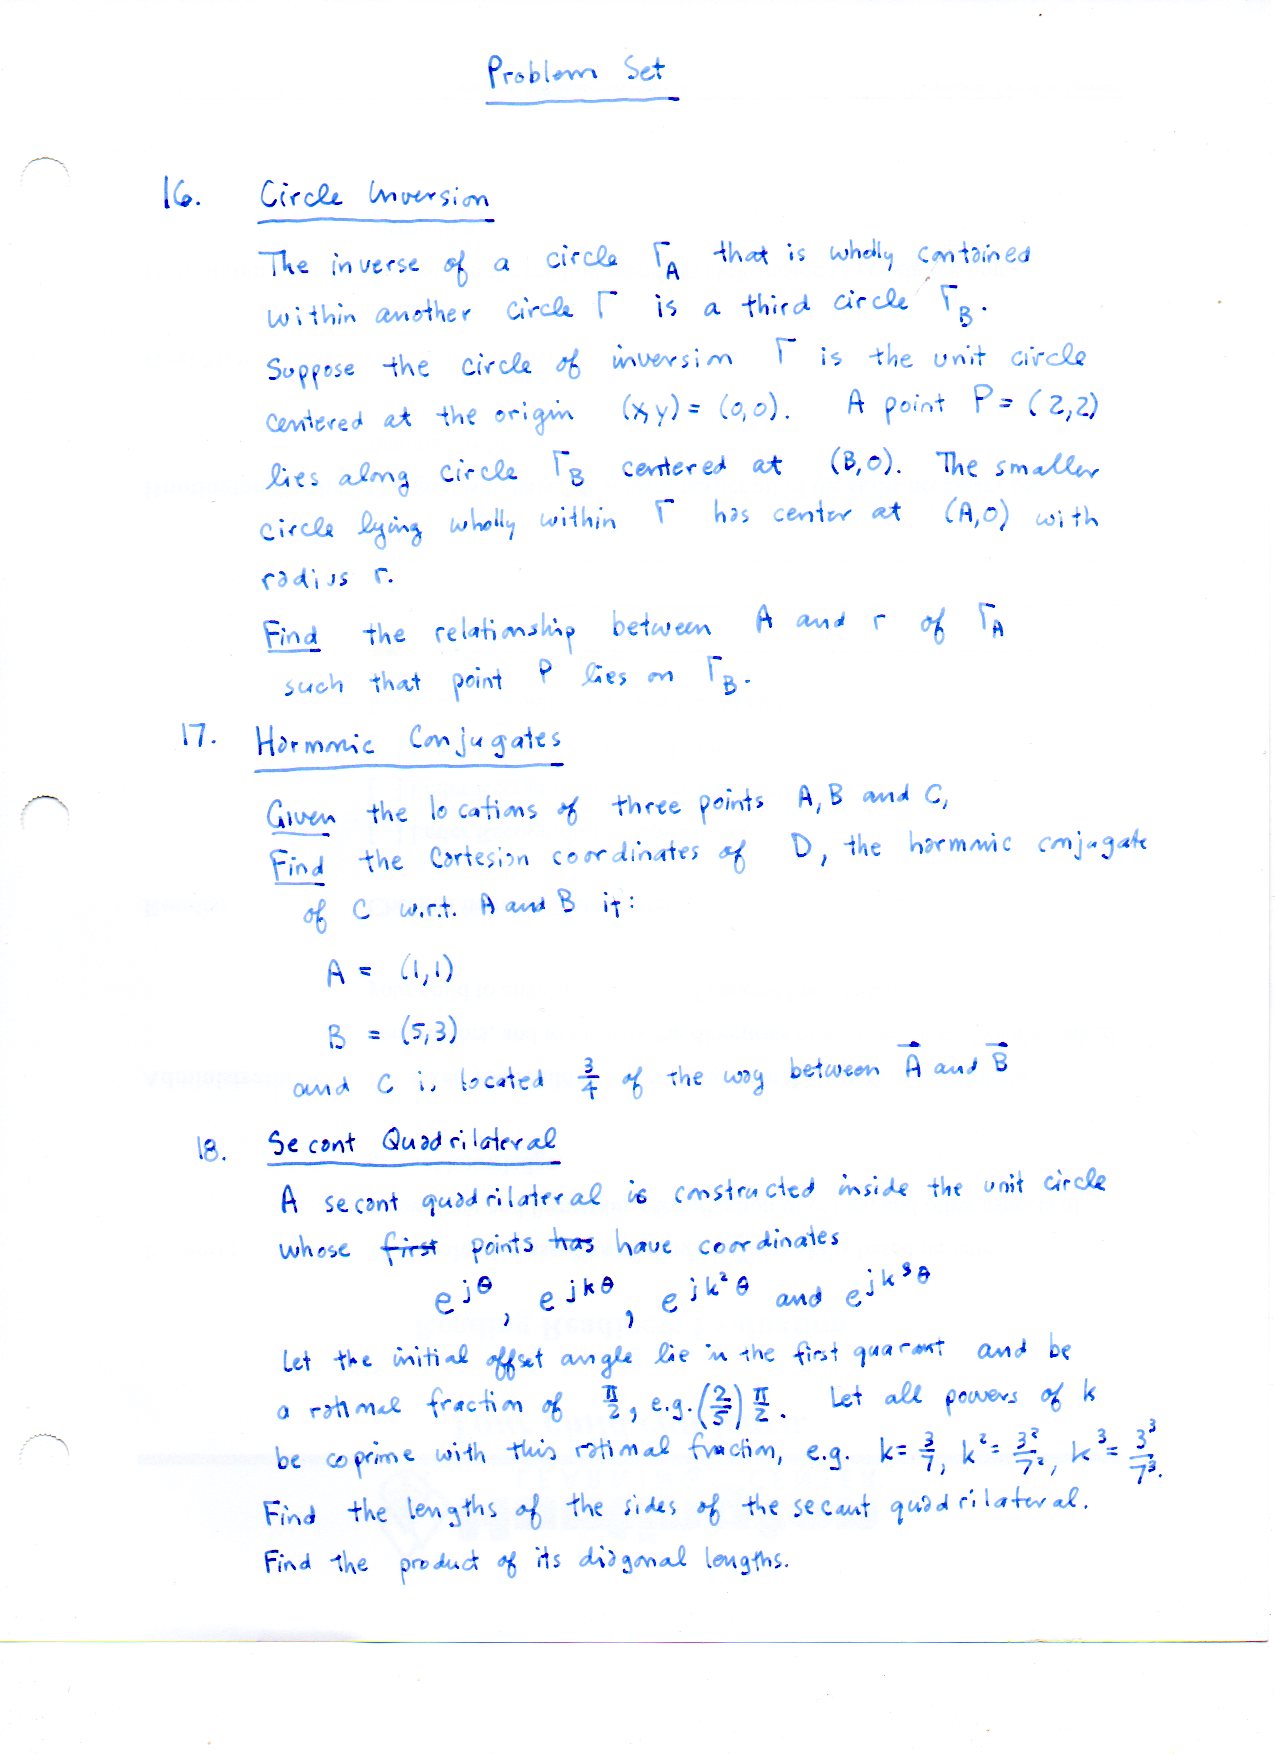 Problem Set
16. Circle Inversion
The inverse of a circle Γ_A that is wholly contained
within another circle Γ is a third circle Γ_B.
Suppose the circle of inversion Γ is the unit circle
centered at the origin (x,y) = (0,0). A point P = (2,2)
lies along circle Γ_B centered at (B,0). The smaller
circle lying wholly within Γ has center at (A,0) with
radius r.
Find the relationship between A and r of Γ_A
such that point P lies on Γ_B.
17. Harmonic Conjugates
Given the locations of three points A, B and C,
Find the Cartesian coordinates of D, the harmonic conjugate
of C w.r.t. A and B if:
A = (1,1)
B = (5,3)
and C is located 3/4 of the way between A⃗ and B⃗
18. Secant Quadrilateral
A secant quadrilateral is constructed inside the unit circle
whose ~~first~~ points ~~has~~ have coordinates
e^{jθ}, e^{jkθ}, e^{jk²θ} and e^{jk³θ}
Let the initial offset angle lie in the first quarant and be
a rational fraction of π/2, e.g. (2/5) π/2. Let all powers of k
be coprime with this rational fraction, e.g. k = 3/7, k² = 3²/7², k³ = 3³/7³.
Find the lengths of the sides of the secant quadrilateral.
Find the product of its diagonal lengths.